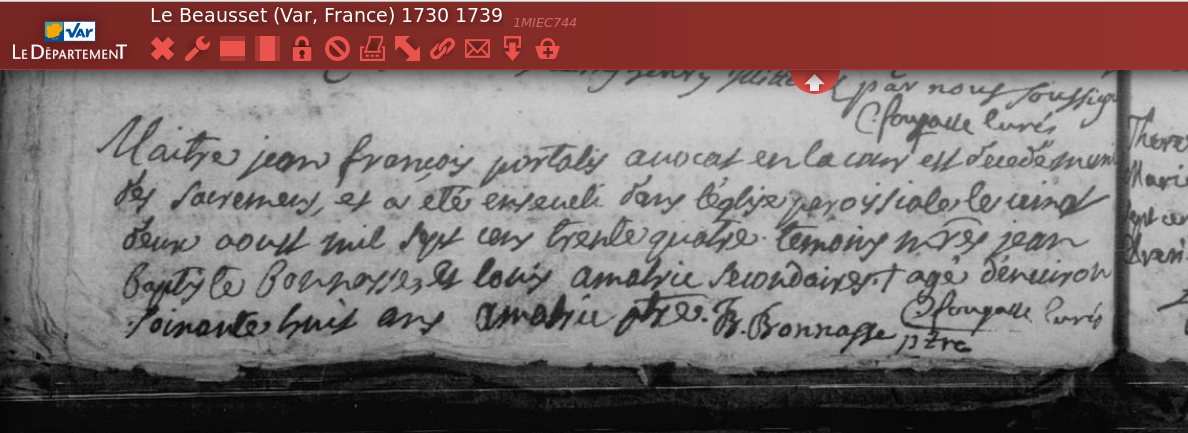 Le Beausset (Var, France) 1730 1739 1MIEC744
VAR
LE DÉPARTEMENT
par nous soussign
C. fougasse curés
Maitre jean françois portalis avocat en la cour est décedé muni
des sacremens, et a eté enseveli dans léglise paroissiale le vint
deux aoust mil sept cens trente quatre. temoins mres jean
Baptiste Bonnasse, et louis amalric secondaires + agé denviron
soixante huit ans amalric ptre. B. Bonnasse C. fougasse curés
ptre
Marie